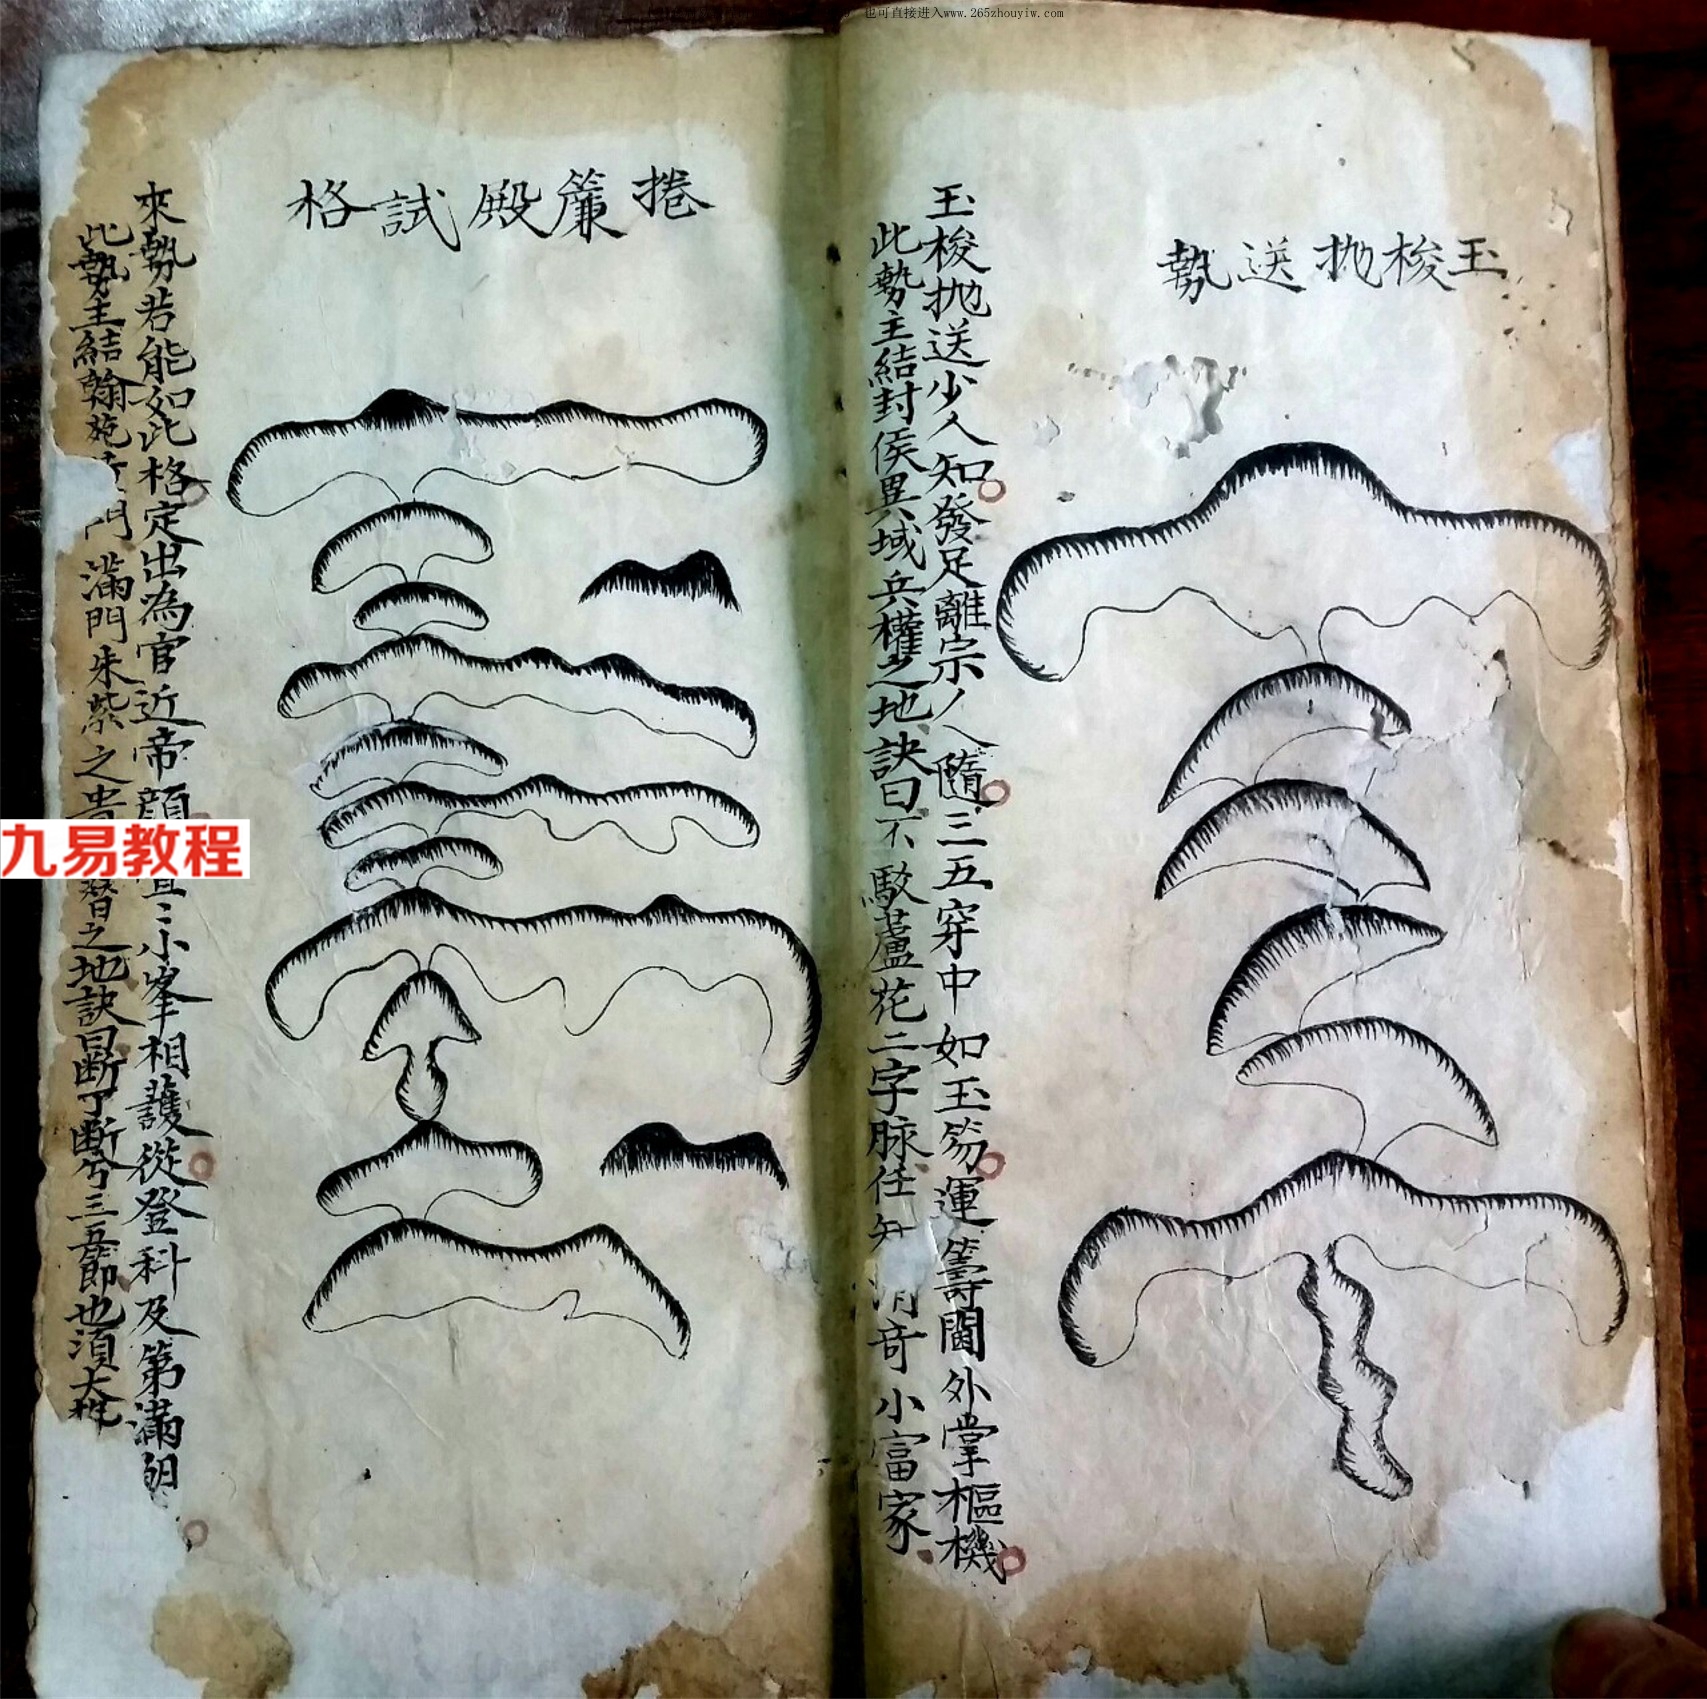 也可直接进入www.265zhouyiw.com
玉梭抛送勢
玉梭抛送少人知發足離宗人隨三五穿中如玉笏運籌閫外掌樞機
此勢主結封侯異域兵權之地訣曰不駁蘆花二字脉任清奇小富家
捲簾殿試格
來勢若能如此格定出為官近帝顔小峯相護從登科及第滿朝
此勢主結翰苑門滿門朱紫之貴替之地訣曰斷了斷兮三五節也須大
九易教程